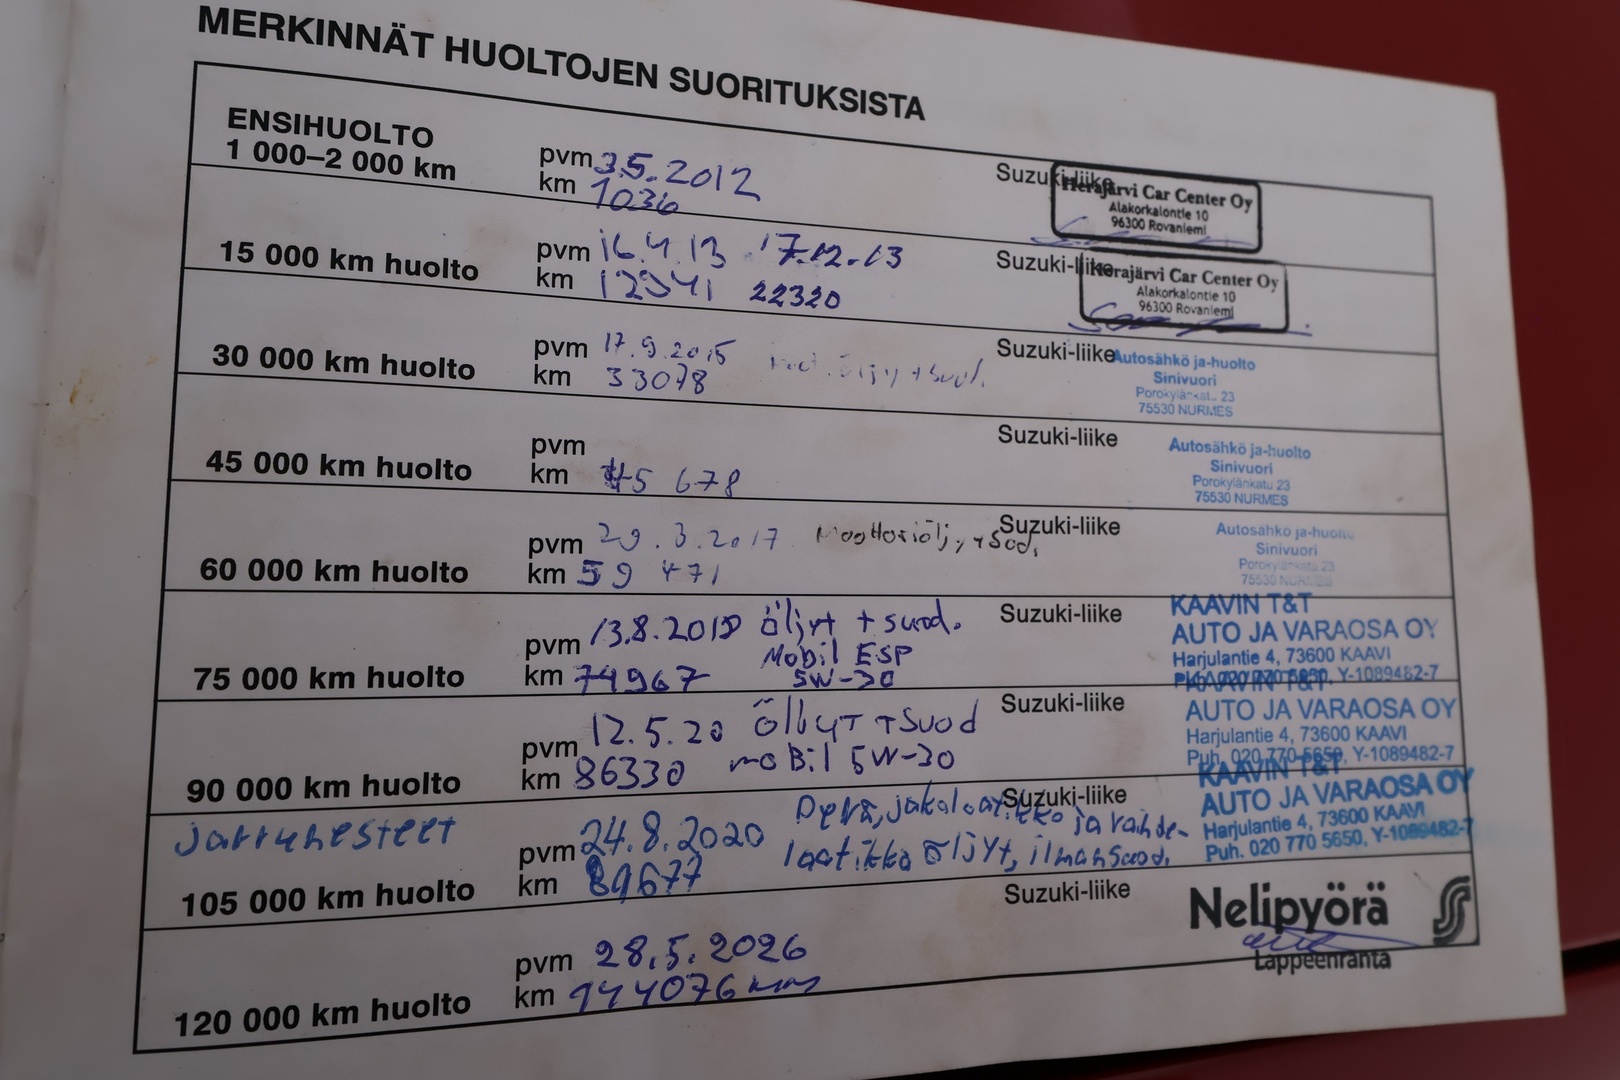 MERKINNÄT HUOLTOJEN SUORITUKSISTA
ENSIHUOLTO
1 000–2 000 km
pvm 3.5.2012
km 1036
Suzuki-liike
Herajärvi Car Center Oy
Alakorkalontie 10
96300 Rovaniemi
15 000 km huolto
pvm 16.4.13 17.12.13
km 12341 22320
Suzuki-liike
Herajärvi Car Center Oy
Alakorkalontie 10
96300 Rovaniemi
30 000 km huolto
pvm 17.9.2015
km 33078
öljy + suod.
Suzuki-liike
Autosähkö ja-huolto
Sinivuori
Porokylänkatu 23
75530 NURMES
45 000 km huolto
pvm
km 45 678
Suzuki-liike
Autosähkö ja-huolto
Sinivuori
Porokylänkatu 23
75530 NURMES
60 000 km huolto
pvm 29.3.2017 Moottoriöljy + Suod,
km 59 471
Suzuki-liike
Autosähkö ja-huolto
Sinivuori
Porokylänkatu 23
75530 NURMES
75 000 km huolto
pvm 13.8.2018 öljyt + suod.
Mobil ESP
km 74967 5W-30
Suzuki-liike
KAAVIN T&T
AUTO JA VARAOSA OY
Harjulantie 4, 73600 KAAVI
Puh. 020 770 5650, Y-1089482-7
90 000 km huolto
pvm 12.5.20 öljyt + suod
km 86330 mobil 5W-30
Suzuki-liike
KAAVIN T&T
AUTO JA VARAOSA OY
Harjulantie 4, 73600 KAAVI
Puh. 020 770 5650, Y-1089482-7
jarrunesteet
105 000 km huolto
pvm 24.8.2020
km 89677
Perä, jakolaatikko ja vaihde-
laatikko öljyt, ilmansuod.
Suzuki-liike
KAAVIN T&T
AUTO JA VARAOSA OY
Harjulantie 4, 73600 KAAVI
Puh. 020 770 5650, Y-1089482-7
120 000 km huolto
pvm 28.5.2026
km 144076 km
Suzuki-liike
Nelipyörä
Lappeenranta